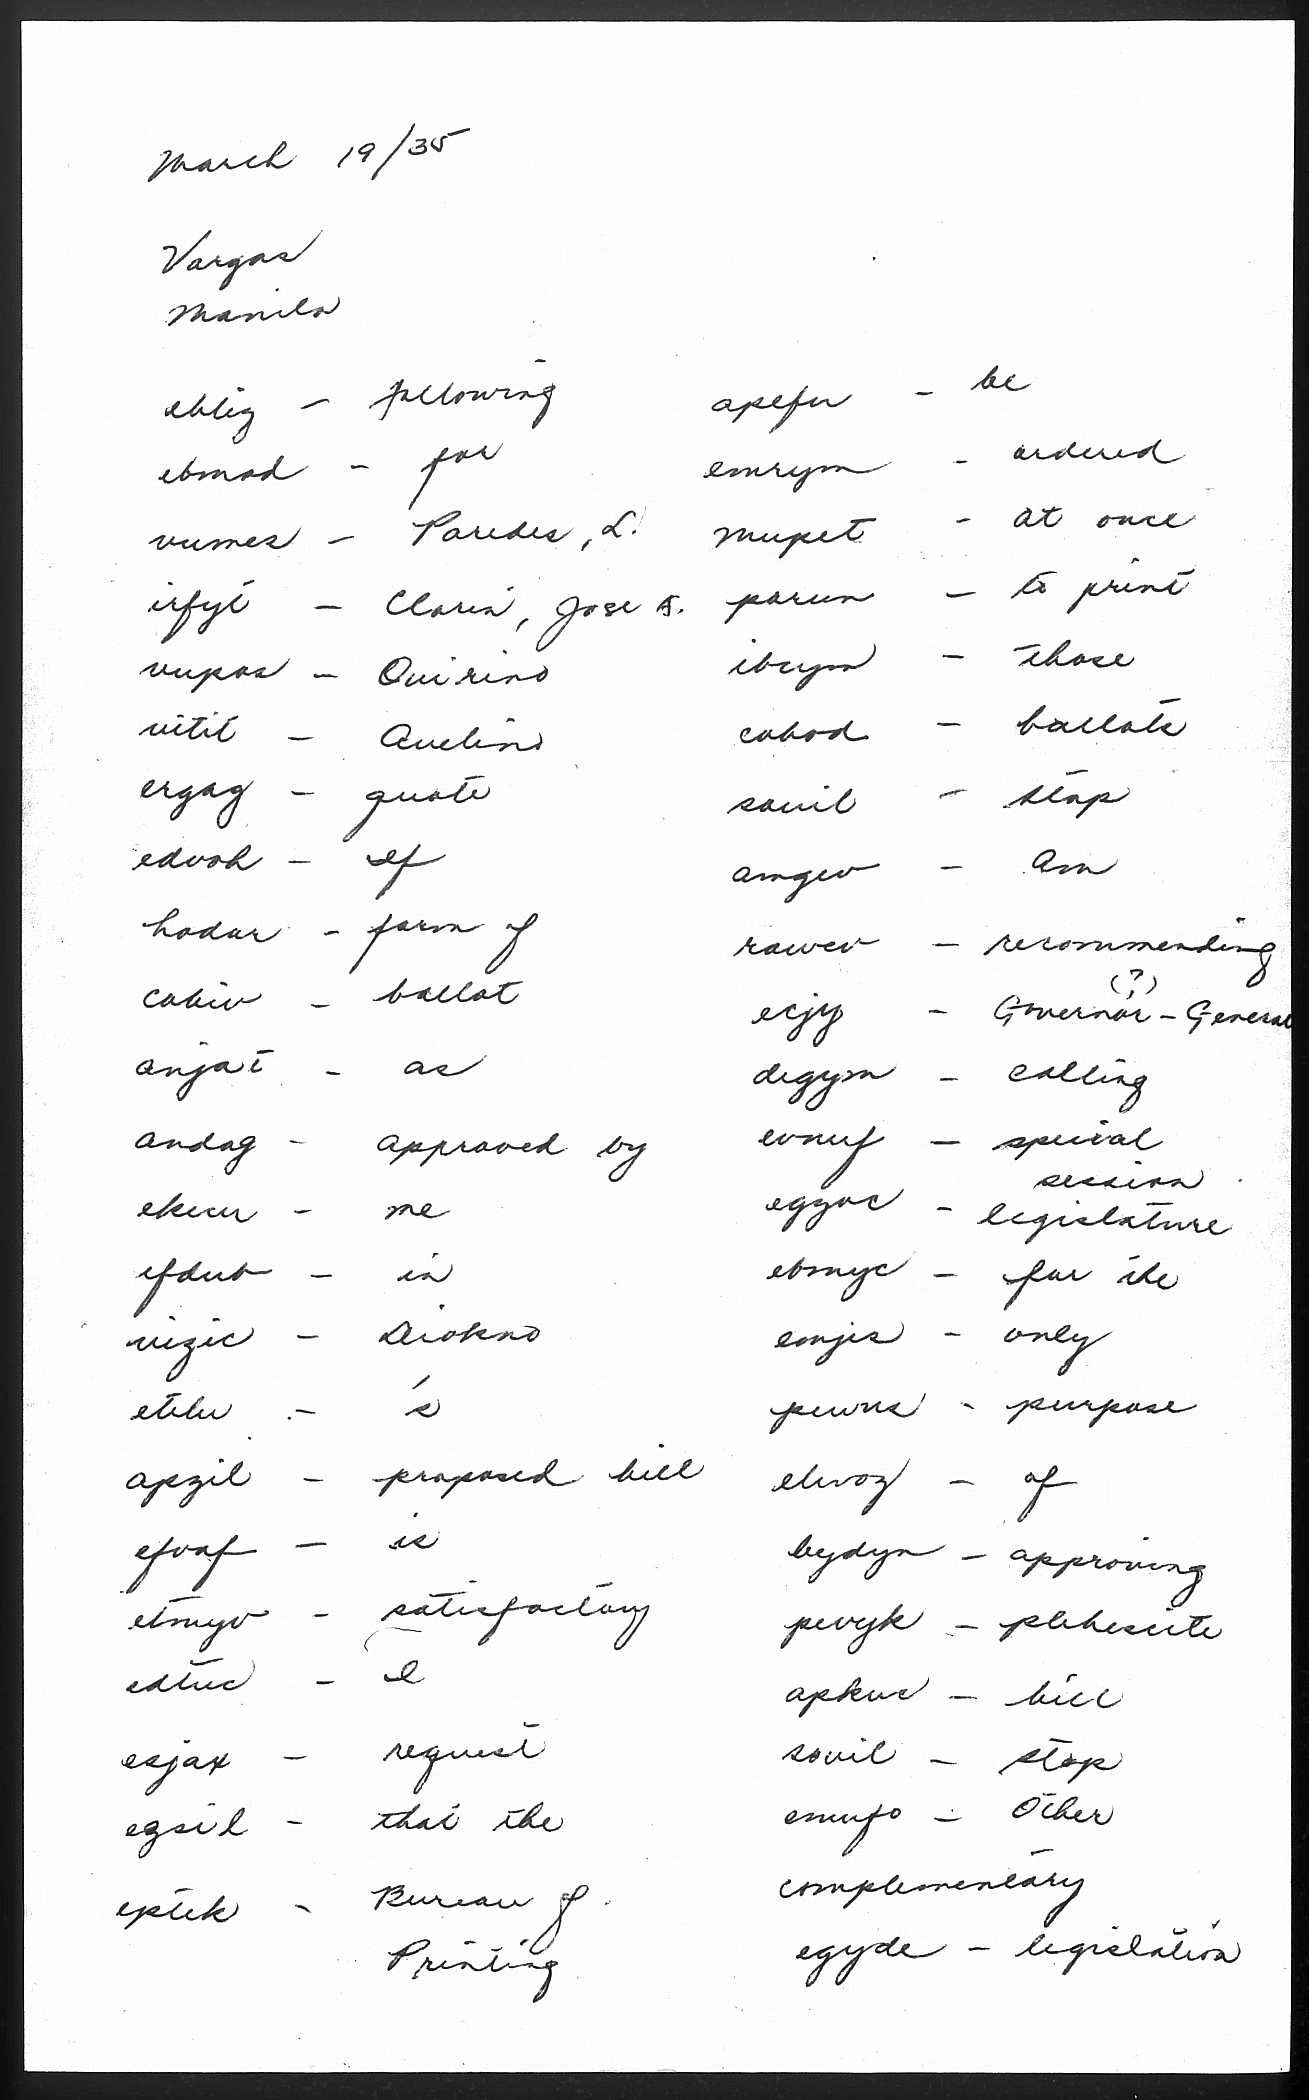 March 19/35
Vargas
Manila
eblig - following
ebmod - for
vumes - Paredes, Q.
irfyt - Clarin, Jose A.
vupos - Quirino
vitit - Avelino
ergag - quote
edvoh - If
hodur - form of
cohiv - ballot
anjat - as
andag - approved by
ekecu - me
efdub - in
vizic - Diokno
etelu - 's
apzil - proposed bill
efvaf - is
etmyv - satisfactory
edtuc - I
esjax - request
egsil - that the
eptek - Bureau of
Printing
apefu - be
emrym - ordered
mupet - at once
parun - to print
ibsym - those
cohod - ballots
souil - stop
amgev - Am
rawev - recommending
(?)
ecjy - Governor-General
degym - calling
evnuf - special
session
egzoc - legislature
ebmyc - for the
emjis - only
pewns - purpose
elwoz - of
bydyn - approving
pevyk - plebescite
apkuc - bill
souil - stop
emufo - Other
complementary
egyde - legislation